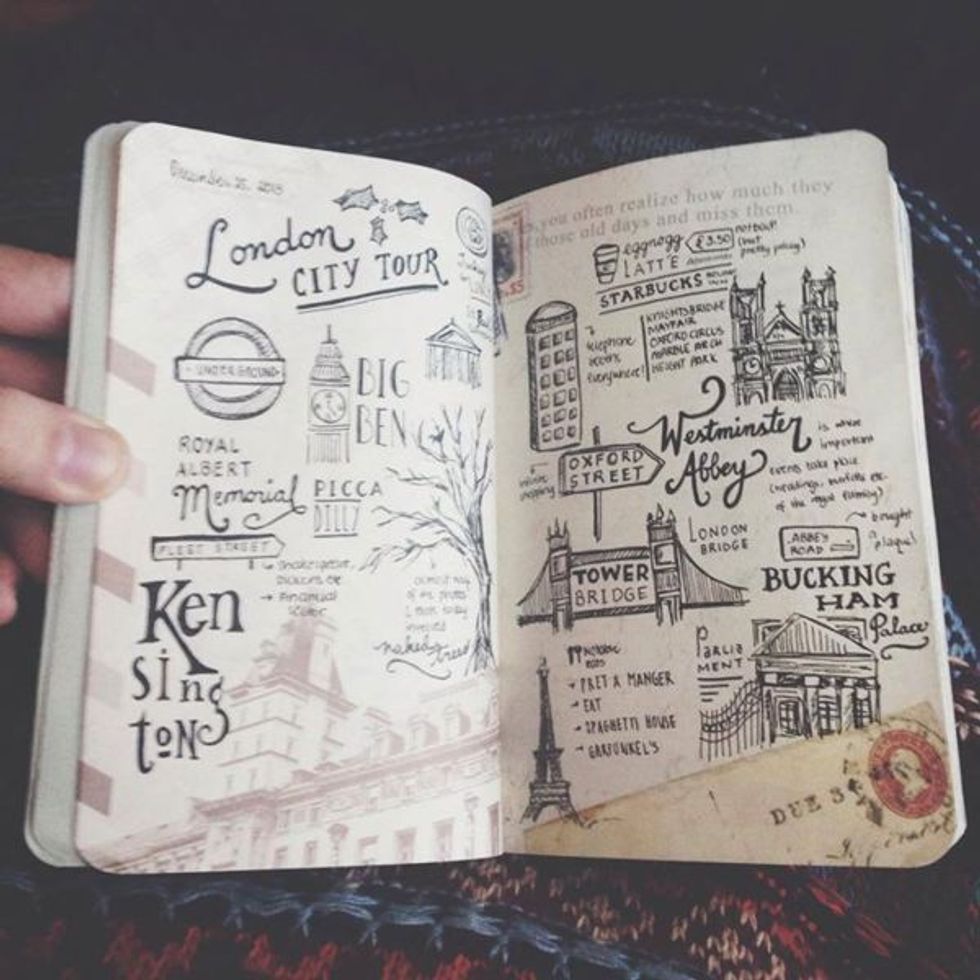 December 25, 2013
London
CITY TOUR
UNDERGROUND
BIG
BEN
ROYAL
ALBERT
Memorial
PICCA
DILLY
FLEET STREET
shakespeare,
dickens or
→ Financial
Ken
sing
toN
almost
of the photos
I took today
involved
naked trees
you often realize how much they
those old days and miss them.
eggnogg £3.50 not bad!
LATTE (but
pretty pricey)
STARBUCKS
KNIGHTSBRIDGE
MAYFAIR
OXFORD CIRCUS
MARBLE ARCH
telephone
booths
everywhere!
Westminster
Abbey
is where
important
events take place
of the royal family)
OXFORD
STREET
shopping
LONDON
BRIDGE
bought
a plaque!
ABBEY
ROAD
TOWER
BRIDGE
BUCKING
HAM
Palace
PARLIA
MENT
PRET A MANGER
EAT
SPAGHETTI HOUSE
GARFUNKEL'S
DUE 3